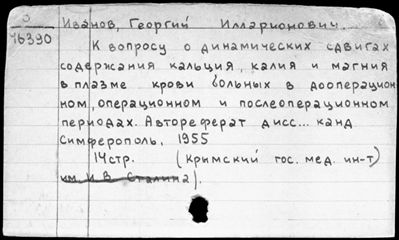 3
76390
Иванов, Георгий Илларионович.
К вопросу о динамических сдвигах
содержания кальция, калия и магния
в плазме крови больных в доопераци‌он
ном, операционном и послеоперационном
периодах. Автореферат дисс... канд
Симферополь, 1955
14 стр. (Крымский гос. мед. ин-т)
им. И.В. Сталина).